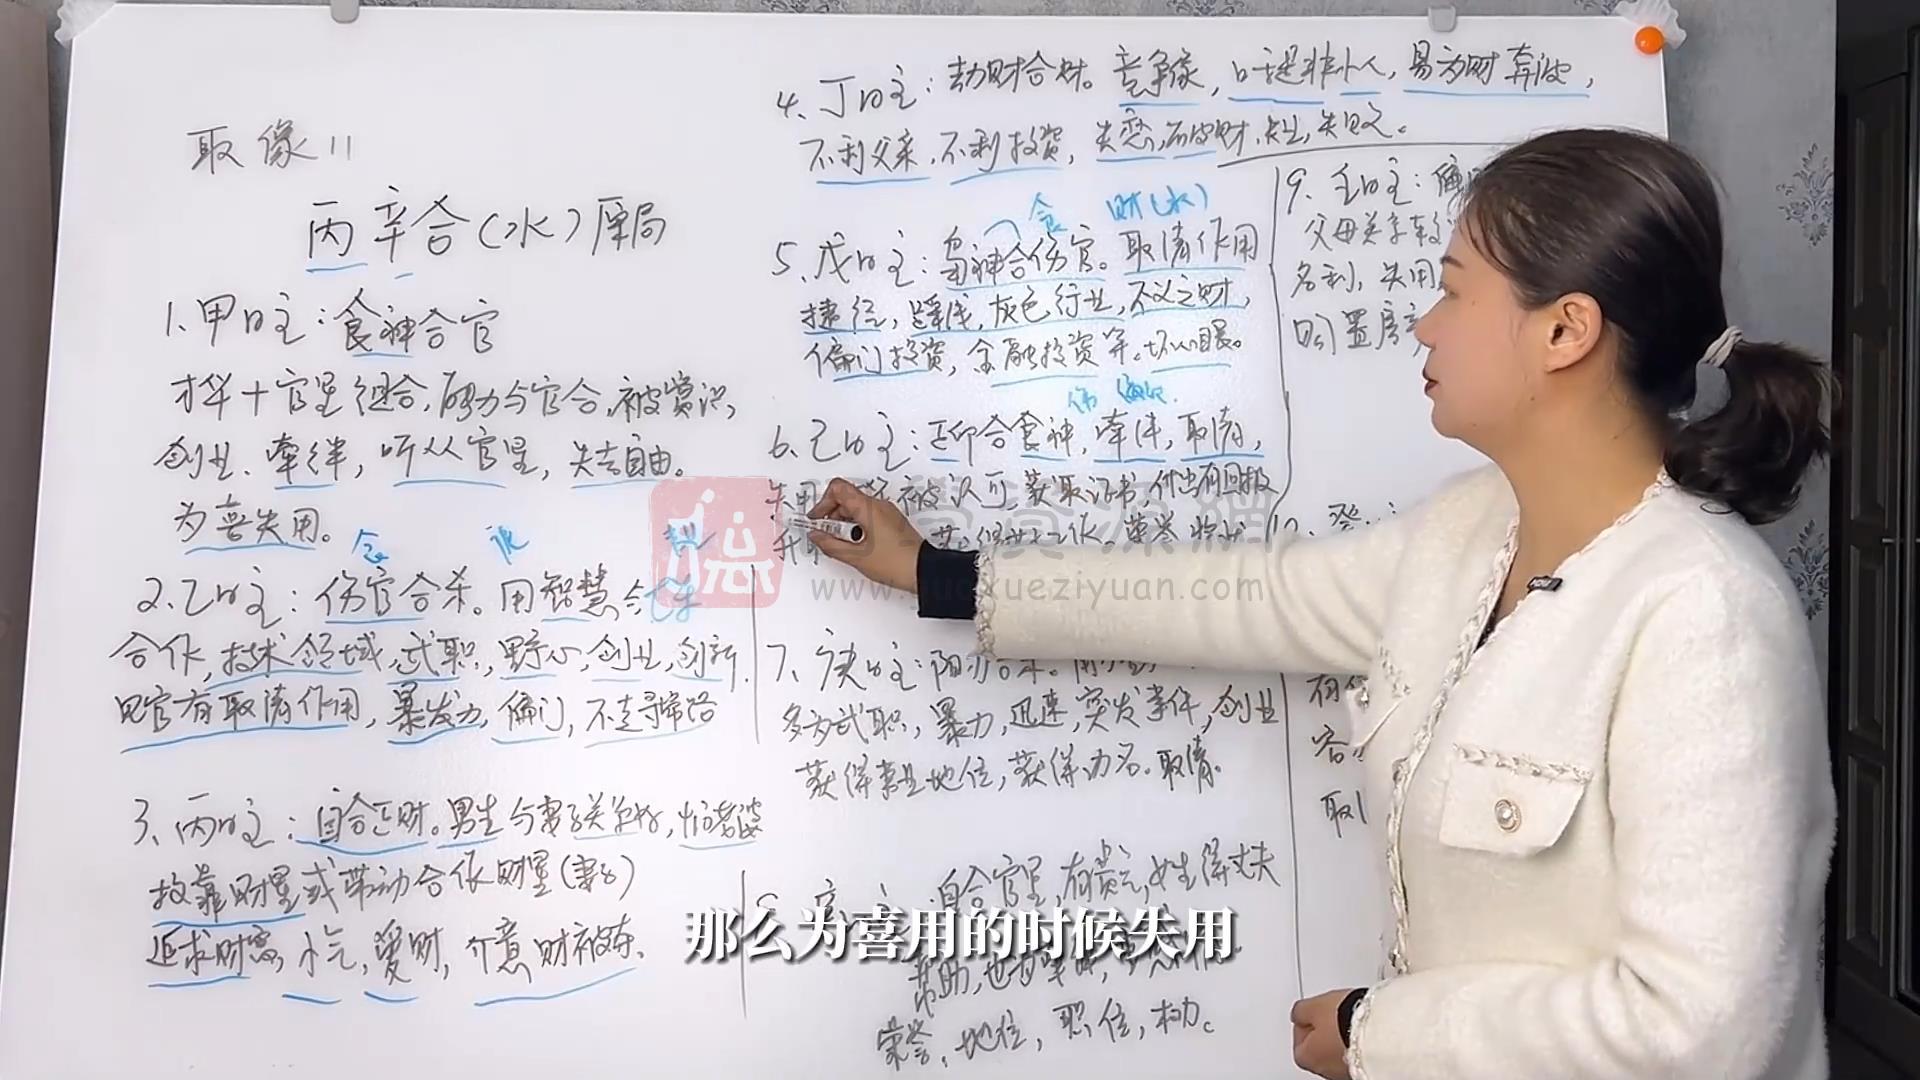 取像11
丙辛合(水)原局
1、甲日主：食神合官
才华+官星组合，能力与官合，被赏识，
创业、牵绊，听从官星，失去自由。
为喜失用。
2、乙日主：伤官合杀。用智慧
合作，技术领域，武职，野心，创业，创新，
见官有取清作用，暴发力，偏门，不走寻常路
3、丙日主：自合正财。男生与妻子关系好，怕老婆
投靠财星或带动合作财星(妻子)
追求财富，小气，爱财，介意财被夺、
4、丁日主：劫财合财。竞争象，口舌是非小人，易为财奔波，
不利父亲，不利投资，失恋，破财，失业，失败。
食 财(水)
5、戊日主：枭神合伤官。取清作用
捷径，赚钱，灰色行业，不义之财，
偏门投资，金融投资等。坏心眼。
6、己日主：正印合食神，牵绊，取清，
失用 被认可，获取证书，付出有回报
7、庚日主：阳刃合杀。
多为武职，暴力，迅速，突发事件，创业
获得事业地位，获得功名。取清。
自合官星，有贵气，女生得丈夫
帮助，也
荣誉，地位，职位，权力。
9、壬日主：偏
父母关系较
名利，失用
置房
取
那么为喜用的时候失用
国学资源网
www.guoxueziyuan.com